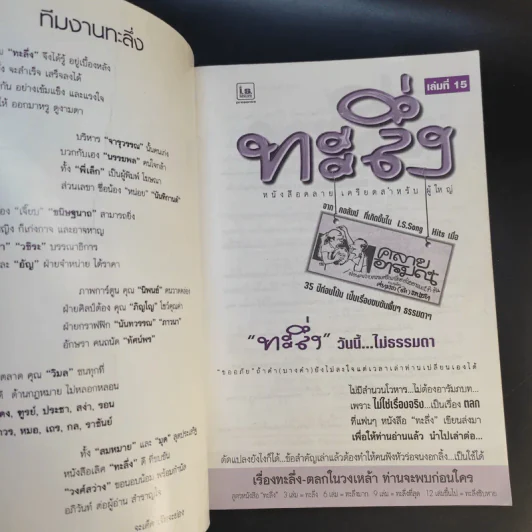 ทีมงานทะลึ่ง
"ทะลึ่ง" จึงได้รู้ อยู่เบื้องหลัง
จะสำเร็จ เสร็จลงได้
กัน อย่างเข้มแข็ง และแรงใจ
ให้ ออกมาหรู ดูงามตา
บริหาร "จารุวรรณ" นั้นคนเก่ง
บวกกับเอง "นรรยพล" คนใจกล้า
ทั้ง "พี่เล็ก" เป็นผู้พิมพ์ โฆษณา
ส่วนเลขา ชื่อน้อง "หน่อย" "นันทิกานต์"
"เจี๊ยบ" "ชนิษฐนาถ" สามารถยิ่ง
หญิง ก็เก่งกาจ และอาจหาญ
"วชิระ" บรรณาธิการ
และ "อัญ" ฝ่ายจำหน่าย ได้ราคา
ภาพการ์ตูน คุณ "นิพนธ์"
ฝ่ายศิลป์ต้อง คุณ "ภิญโญ" โชว์คุณค่า
ฝ่ายกราฟฟิก "นันทวรรณ" "ภาวนา"
อักษรา คนถนัด "ทัศน์พร"
ตลาด คุณ "วิมล" ชนทุกที่
ดี ด้านกฎหมาย ไม่หลอกหลอน
ฑูรย์, ประชา, สง่า, รอน
หมอ, เถร, กล, ราชันย์
ทั้ง "สมหมาย" และ "มุด" สุดประเสริฐ
หนังสือเลิศ "ทะลึ่ง" ดี ที่ขบขัน
"วงศ์สว่าง" ขอนอบน้อม พร้อมกำนัล
อภินันท์ ต่อผู้อ่าน สำราญใจ
i.s.
เล่มที่ 15
ทะลึ่ง
หนังสือคลายเครียดสำหรับผู้ใหญ่
จาก คอลัมน์ ที่เกิดขึ้นใน I.S.Song Hits เมื่อ
คลายอารมณ์
35 ปีก่อนโน้น เป็นเรื่องขบขันพื้นๆ ธรรมดาๆ
"ทะลึ่ง" วันนี้...ไม่ธรรมดา
ไม่มีสำนวนโวหาร...ไม่ต้องอารัมภบท...
เพราะ ไม่ใช่เรื่องจริง...เป็นเรื่อง ตลก
ที่แฟนๆ หนังสือ "ทะลึ่ง" เขียนส่งมา
เพื่อให้ท่านอ่านแล้ว นำไปเล่าต่อ...
ดัดแปลงยังไงก็ได้...ข้อสำคัญเล่าแล้วต้องทำให้คนฟังหัวร่องอกลิ้ง...เป็นใช้ได้
เรื่องทะลึ่ง-ตลกในวงเหล้า ท่านจะพบก่อนใคร